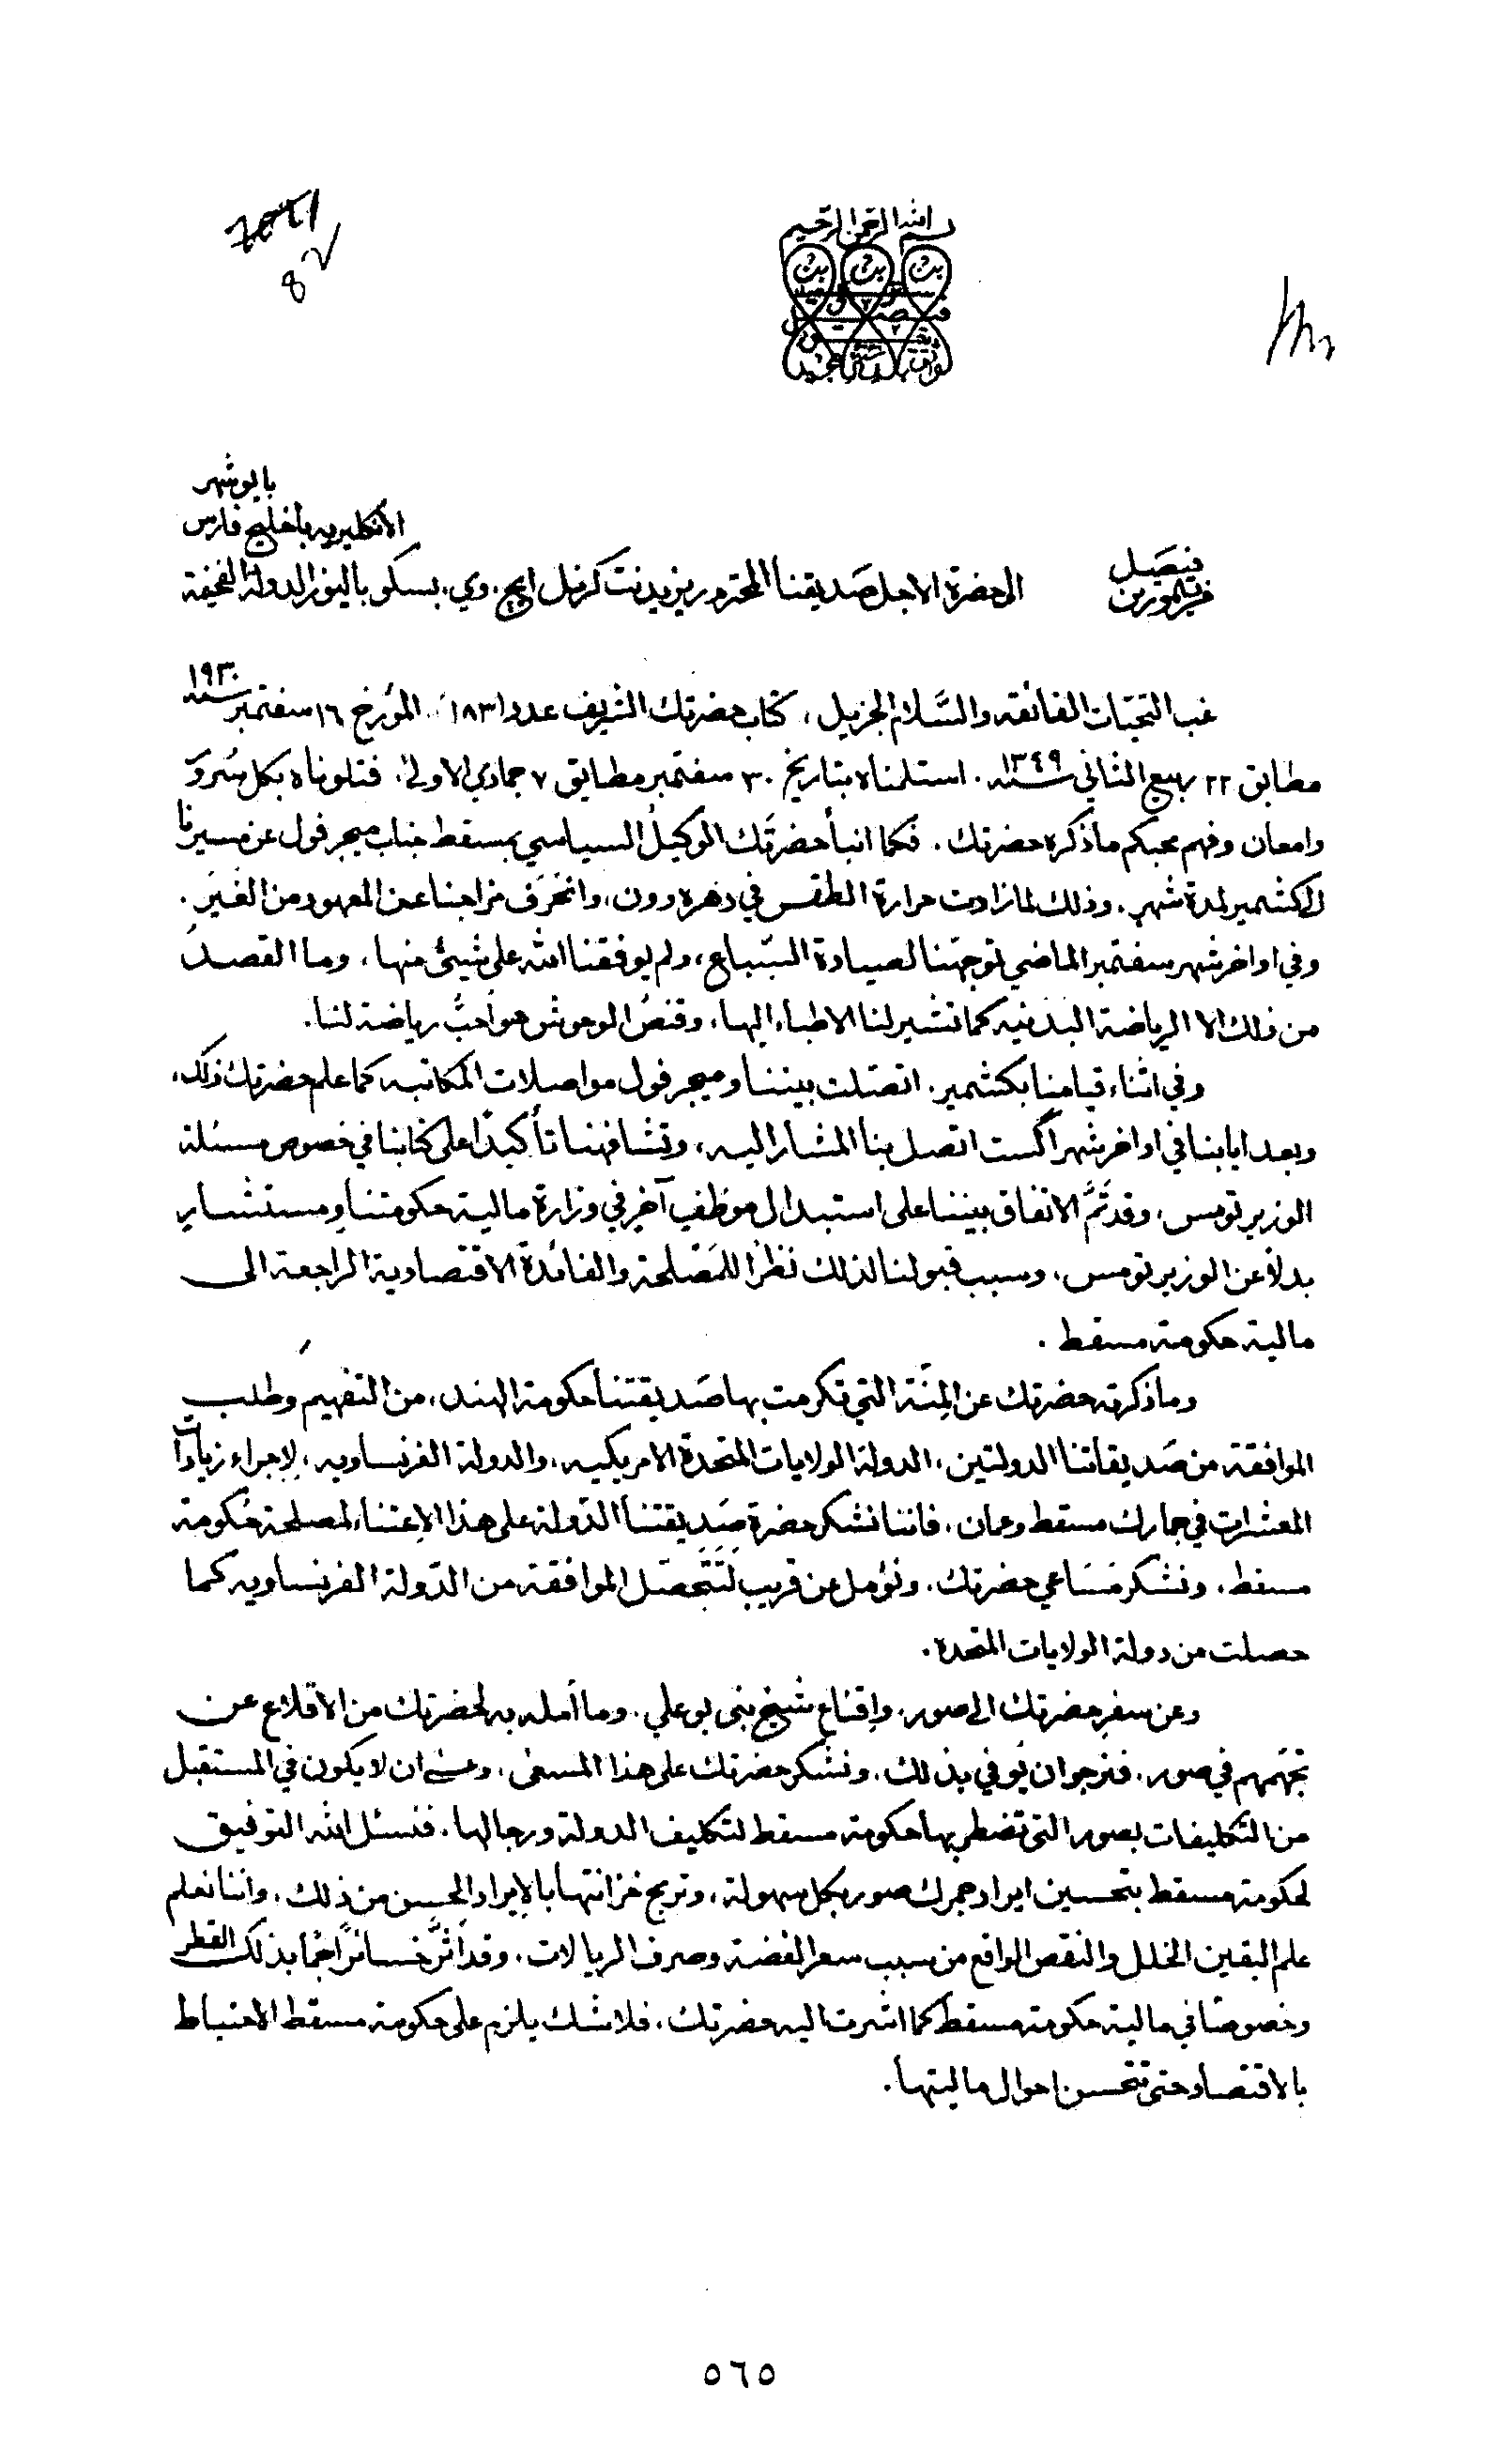 بسم الله الرحمن الرحيم
بن بن بن
8
بابوشهر
الأنكليزيه باخليج فارس
فيصل الى حضرة الاجل صديقنا المحترم ريزيدنت كرنل ايچ. وي. بسكو باليوز الدولة الفخيمة
من تيمور بن
غب التحيّات الفائقه والسَّلام الجزيل، كتاب حضرتك الشريف عدد ١٨٣١. المؤرخ ١٦ سفتمبر سنه ١٩٣٠
مطابق ٢٢ ربيع الثاني سنه ١٣٤٩. استلمناه بتاريخ ٣٠ سفتمبر مطابق ٧ جمادي الاولى. فتلوناه بكل سُروَ
وامعان وفهم محبكم ما ذكره حضرتك. فكما انبأ حضرتَك الوكيلُ السياسي بمسقط جناب ميجر فول عن مسيرنا
الى كشمير لمدة شهر. وذلك لما زادت حرارة الطقس في دهره دون، وانحَرَف مزاجنا عن المعهود من الغَيَر.
وفي اواخر شهر سفتمبر الماضي توجهّنا لصيادة السّباع، ولم يوفقنا الله على شيئ منها، وما القصد
من ذلك الا الرياضة البدنيه كما تشير لنا الاطباء اليها، وقنصُ الوحوش هو أحبُّ رياضة لنا.
وفي اثناء قيامنا بكشمير. اتصَلت بيننا وميجر فول مواصلات المكاتبه كما علم حضرتك ذلك،
وبعد ايابنا في اواخر شهر اگست اتصل بنا المشار اليه، وتشافهنا تأكيدًا على كتابنا في خصوص مسئلة
الوزير تومس، وقد تَمَّ الاتفاق بيننا على استبدال موظف آخر في وزارة مالية حكومتنا ومستشار
بدلًا عن الوزير تومس، وسبب قبولنا لذلك نظرًا للمَصْلحة والفائدة الاقتصادية الراجعة الى
مالية حكومة مسقط.
وما ذكرته حضرتك عن المِنَّة التي تكرمت بها صَديقتنا حكومة الهند، من التفهيم وطلب
الموافقة من صَديقاتنا الدولتين، الدولة الولايات المتحدة الامريكيه، والدولة الفرنساويه، لإجراء زيادات
المعشرات في جمارك مسقط وعمان، فاننا نشكر حضرة صَديقتنا الدّولة على هذا الإعتناء لمصلحة حُكومة
مسقط، ونشكر مَسَاعي حضرتك. ونؤمل عن قريب لتَتَحَصّل الموافقة من الدّولة الفرنساويه كما
حصلت من دولة الولايات المتحده.
وعن سفر حضرتك الى صور، وإقناع شيخ بني بو علي. وما أمله به لحضرتك من الاقلاع عن
تجهّمهم في صور. فنرجوا ان يُوفي بذلك، ونشكر حضرتك على هذا المسعى، وعسى ان لا يكون في المستقبل
من التكليفات بصور التي تضطر بها حكومة مسقط لتكليف الدولة ورجالها، فنسئل الله التوفيق
لحكومة مسقط بتحسين ايراد جمرك صور بكل سهولة، وتربح خزانتها بالإيراد الحسن من ذلك، واننا نعلم
علم اليقين الخلل والنقص الواقع من سبب سعر الفضة وصرف الريالات. وقد اثَّر خسائرًا جَمًا بذلك القطر
وخصوصًا في مالية حكومة مسقط كما اشرت اليه حضرتك، فلا شك يلزم على حكومة مسقط الاحتياط
بالاقتصاد حتى تتحسن احوال ماليتها.
٥٦٥